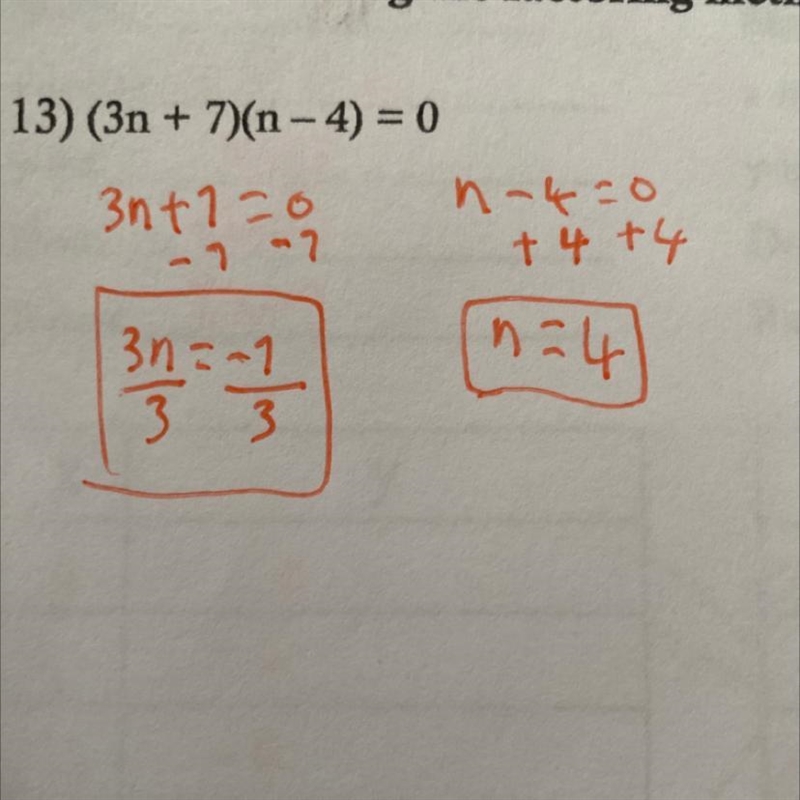 13) (3n + 7)(n – 4) = 0
3n+7=0
-7 -7
3n = -7
3 3
n-4=0
+4 +4
n=4